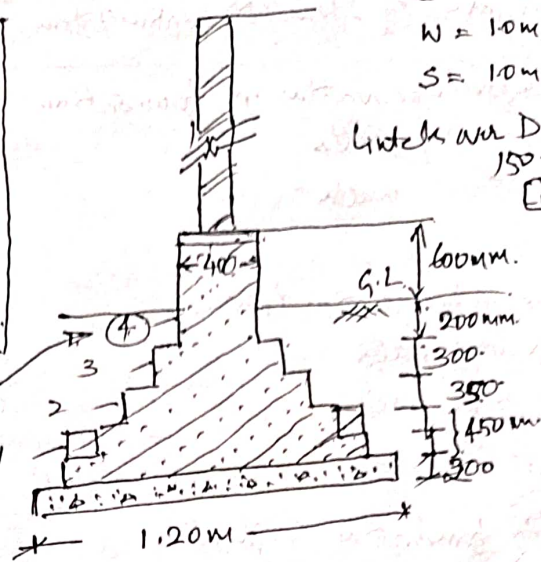 W = 1.0m
S = 1.0m
Lintels over D
150
400
600mm.
G.L
200mm.
4
3
300.
350
2
450 m
300
1.20m